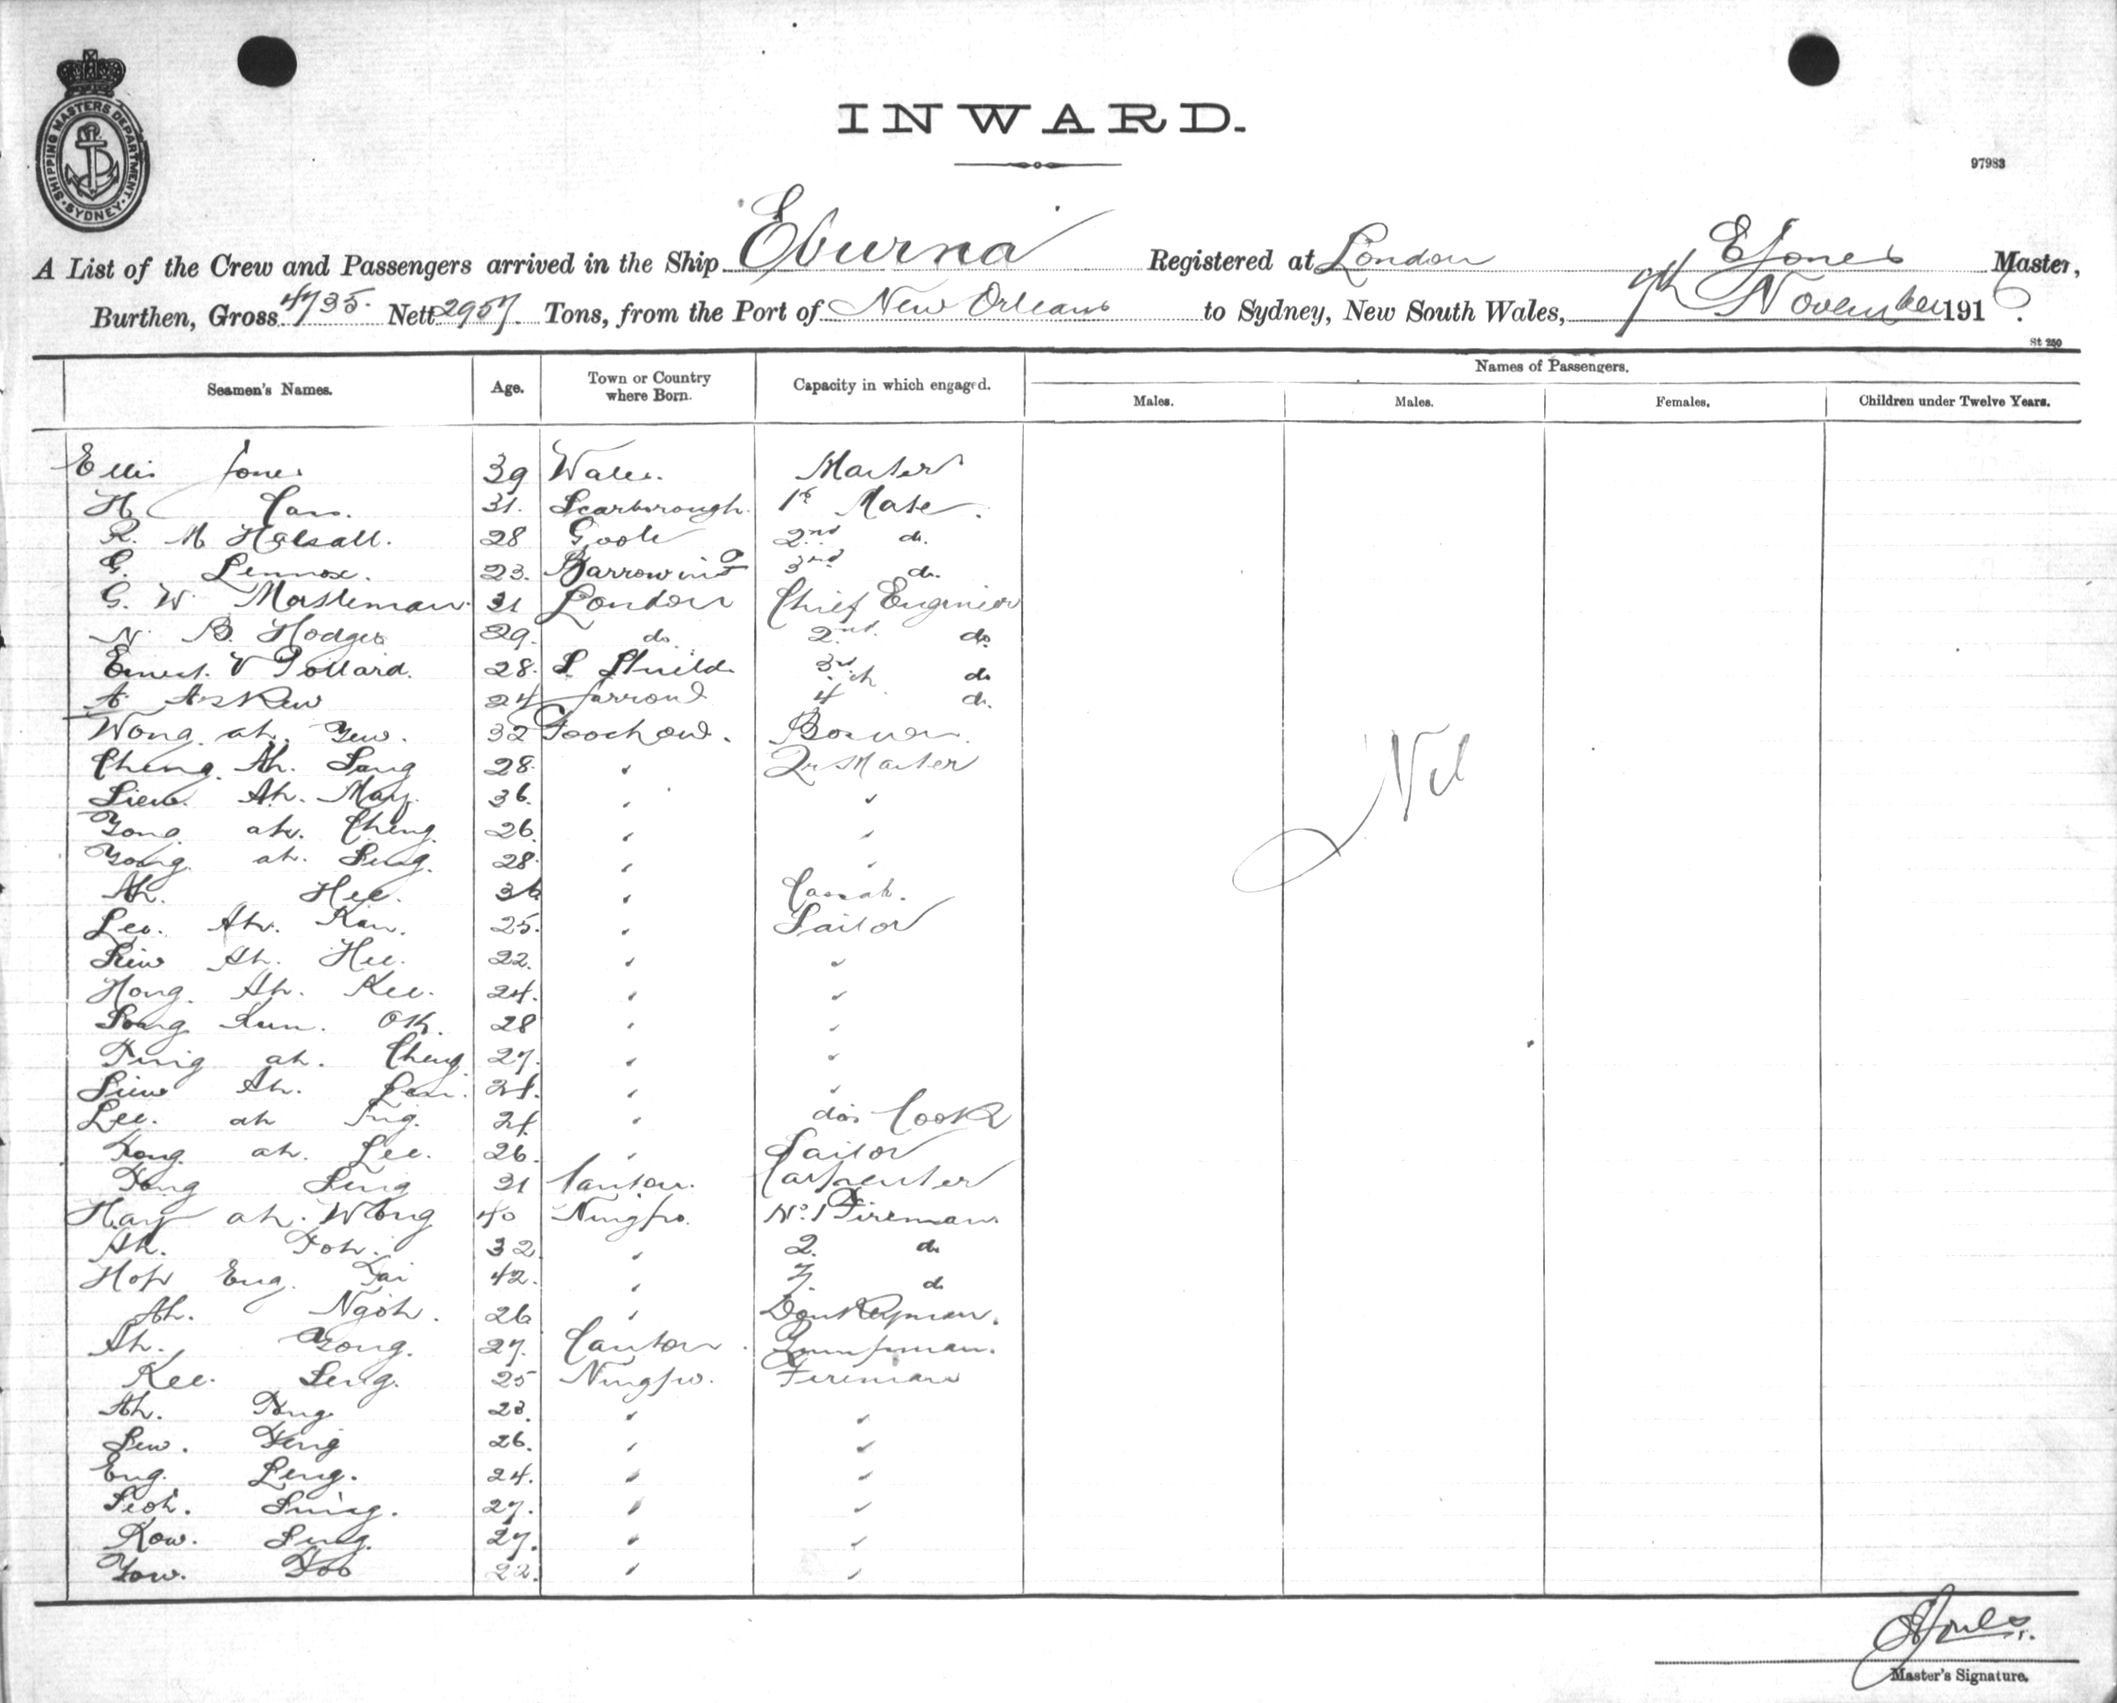 INWARD.
SHIPPING MASTERS DEPARTMENT · SYDNEY ·
97983
A List of the Crew and Passengers arrived in the Ship Eburna Registered at London E Jones Master,
Burthen, Gross 4735. Nett 2957. Tons, from the Port of New Orleans to Sydney, New South Wales, 9th November 1916.
St 250
Names of Passengers.
Seamen's Names. Age. Town or Country where Born. Capacity in which engaged. Males. Males. Females. Children under Twelve Years.
Ellis Jones 39 Wales. Master
H 31. Scarborough. 1st Mate.
R. M Halsall. 28 Goole 2nd do.
G. Lennox. 23. Barrow in F 3rd do.
G. W. Masleman. 31 London Chief Engineer
N. B. Hodges 29. do 2nd. do
Ernest. V Pollard. 28. S. Shields 3rd do
A Askew 24 Jarrow 4th do.
Wong. ah. Yew. 32 Foochow. Bosun.
Cheng. Ah. Sang 28. " Qr Master
Liew. Ah. May. 36. " "
Yong ah. Cheng. 26. " "
Yong. ah. Seng. 28. " "
Ah. Hee. 36 " Cassab.
Leo. Ah. Kan. 25. " Sailor
Liew Ah. Hee. 22. " "
Hong. Ah. Kee. 24. " "
Song Kun. OK. 28 " "
Ting ah. Cheng 27. " "
Liew Ah. " "
Lee. ah " do's Cook
Tong. ah. Lee. 26. " Sailor
Tong Seng 31 Canton. Carpenter
Hay ah. Wong 40 Ningpo. No. 1 Fireman
Ah. Foh. 32 " 2. do
Hop Eng. Tai 42. " 3. do
Ah. Ngoh. 26 " Donkeyman.
Ah. Yong. 27. Canton. Pumpman.
Kee. Seng. 25 Ningpo. Fireman
Ah. Tong 23. " "
Sew. Teng 26. " "
Eng. Leng. 24. " "
Seoh. 27. " "
Kow. Seng. 27. " "
Yow. Foo 22. " "
Nil
E Jones.
Master's Signature.